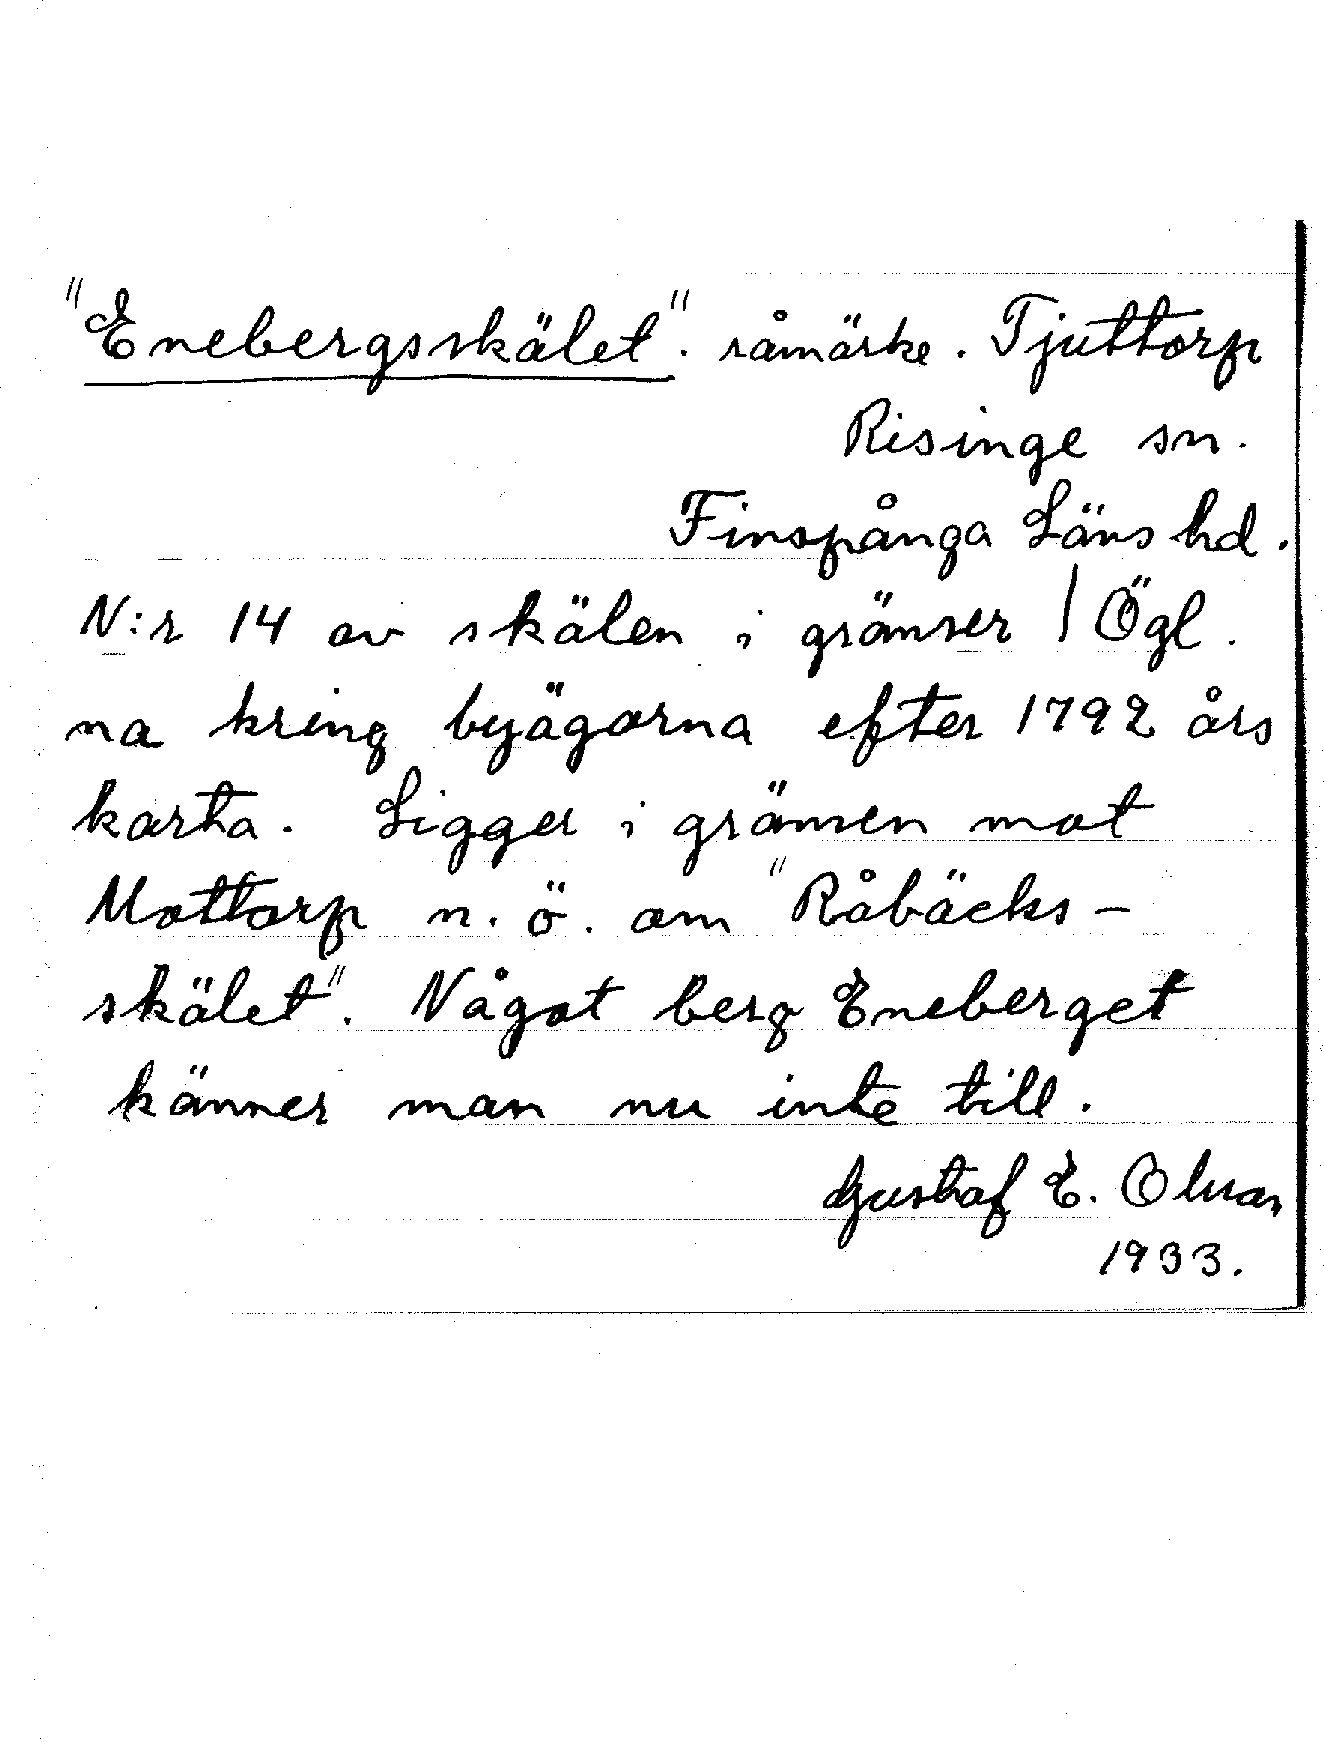 "Enebergsskälet". råmärke. Tjuttorp
Risinge sn.
Finspånga Läns hd.
N:r 14 av skälen i gränser | Ögl.
na kring byägorna efter 1792 års
karta. Ligger i gränsen mot
Mottorp n.ö. om "Råbäcks-
skälet". Något berg Eneberget
känner man nu inte till.
Gustaf E. Olsson
1933.